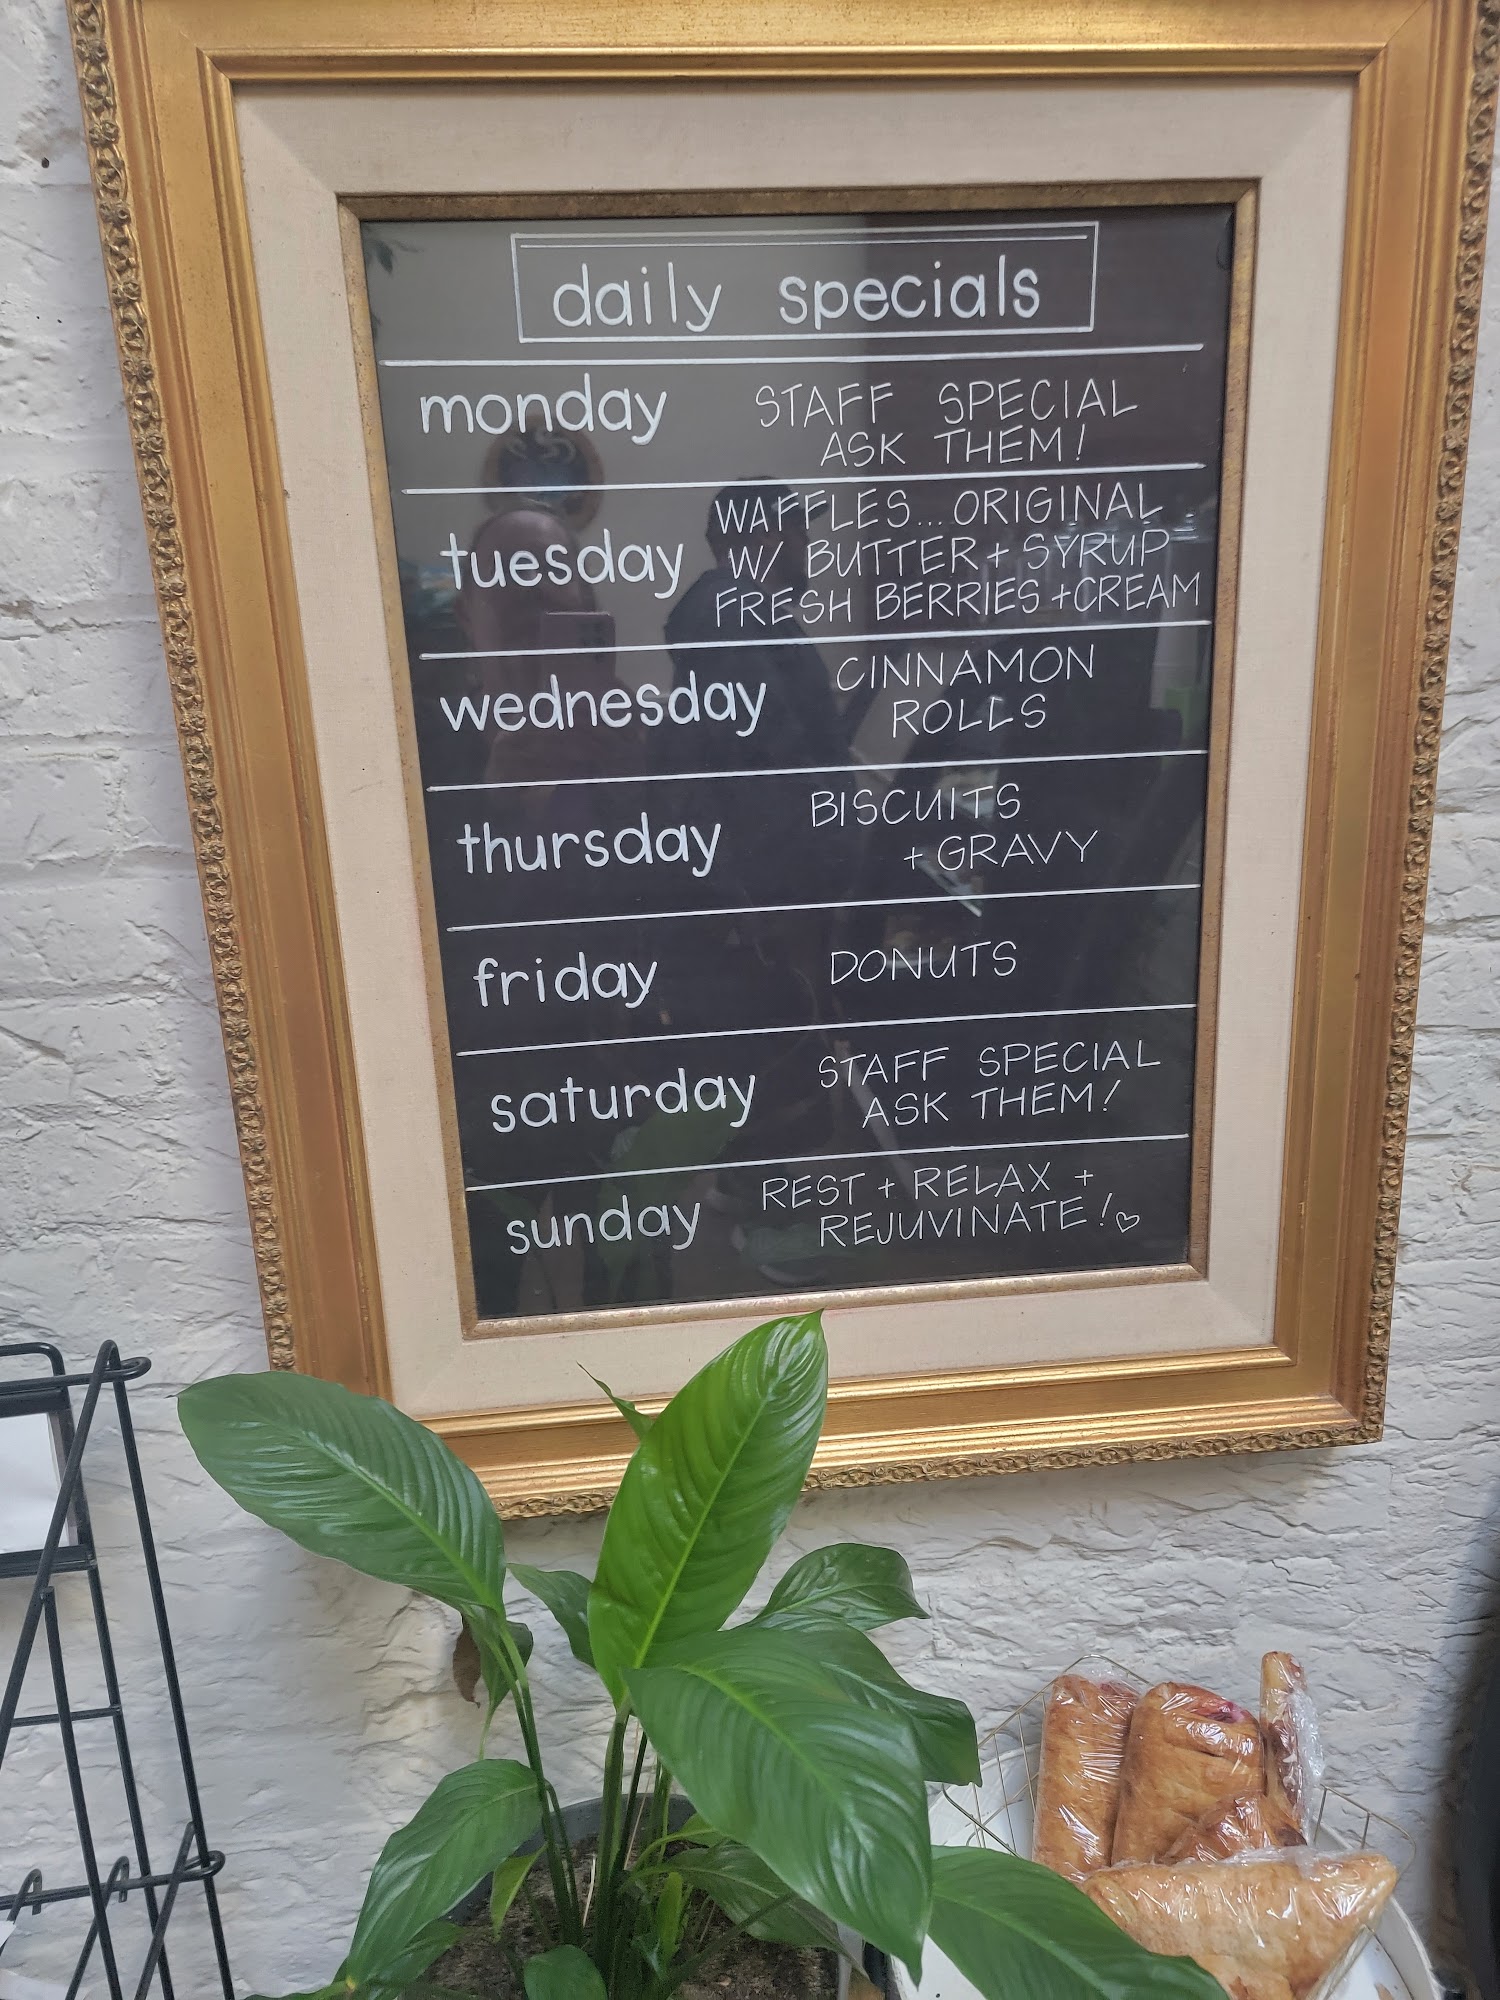 daily specials
monday
STAFF SPECIAL
ASK THEM!
tuesday
WAFFLES...ORIGINAL
W/ BUTTER + SYRUP
FRESH BERRIES + CREAM
wednesday
CINNAMON
ROLLS
thursday
BISCUITS
+ GRAVY
friday
DONUTS
saturday
STAFF SPECIAL
ASK THEM!
sunday
REST + RELAX +
REJUVINATE! ♡